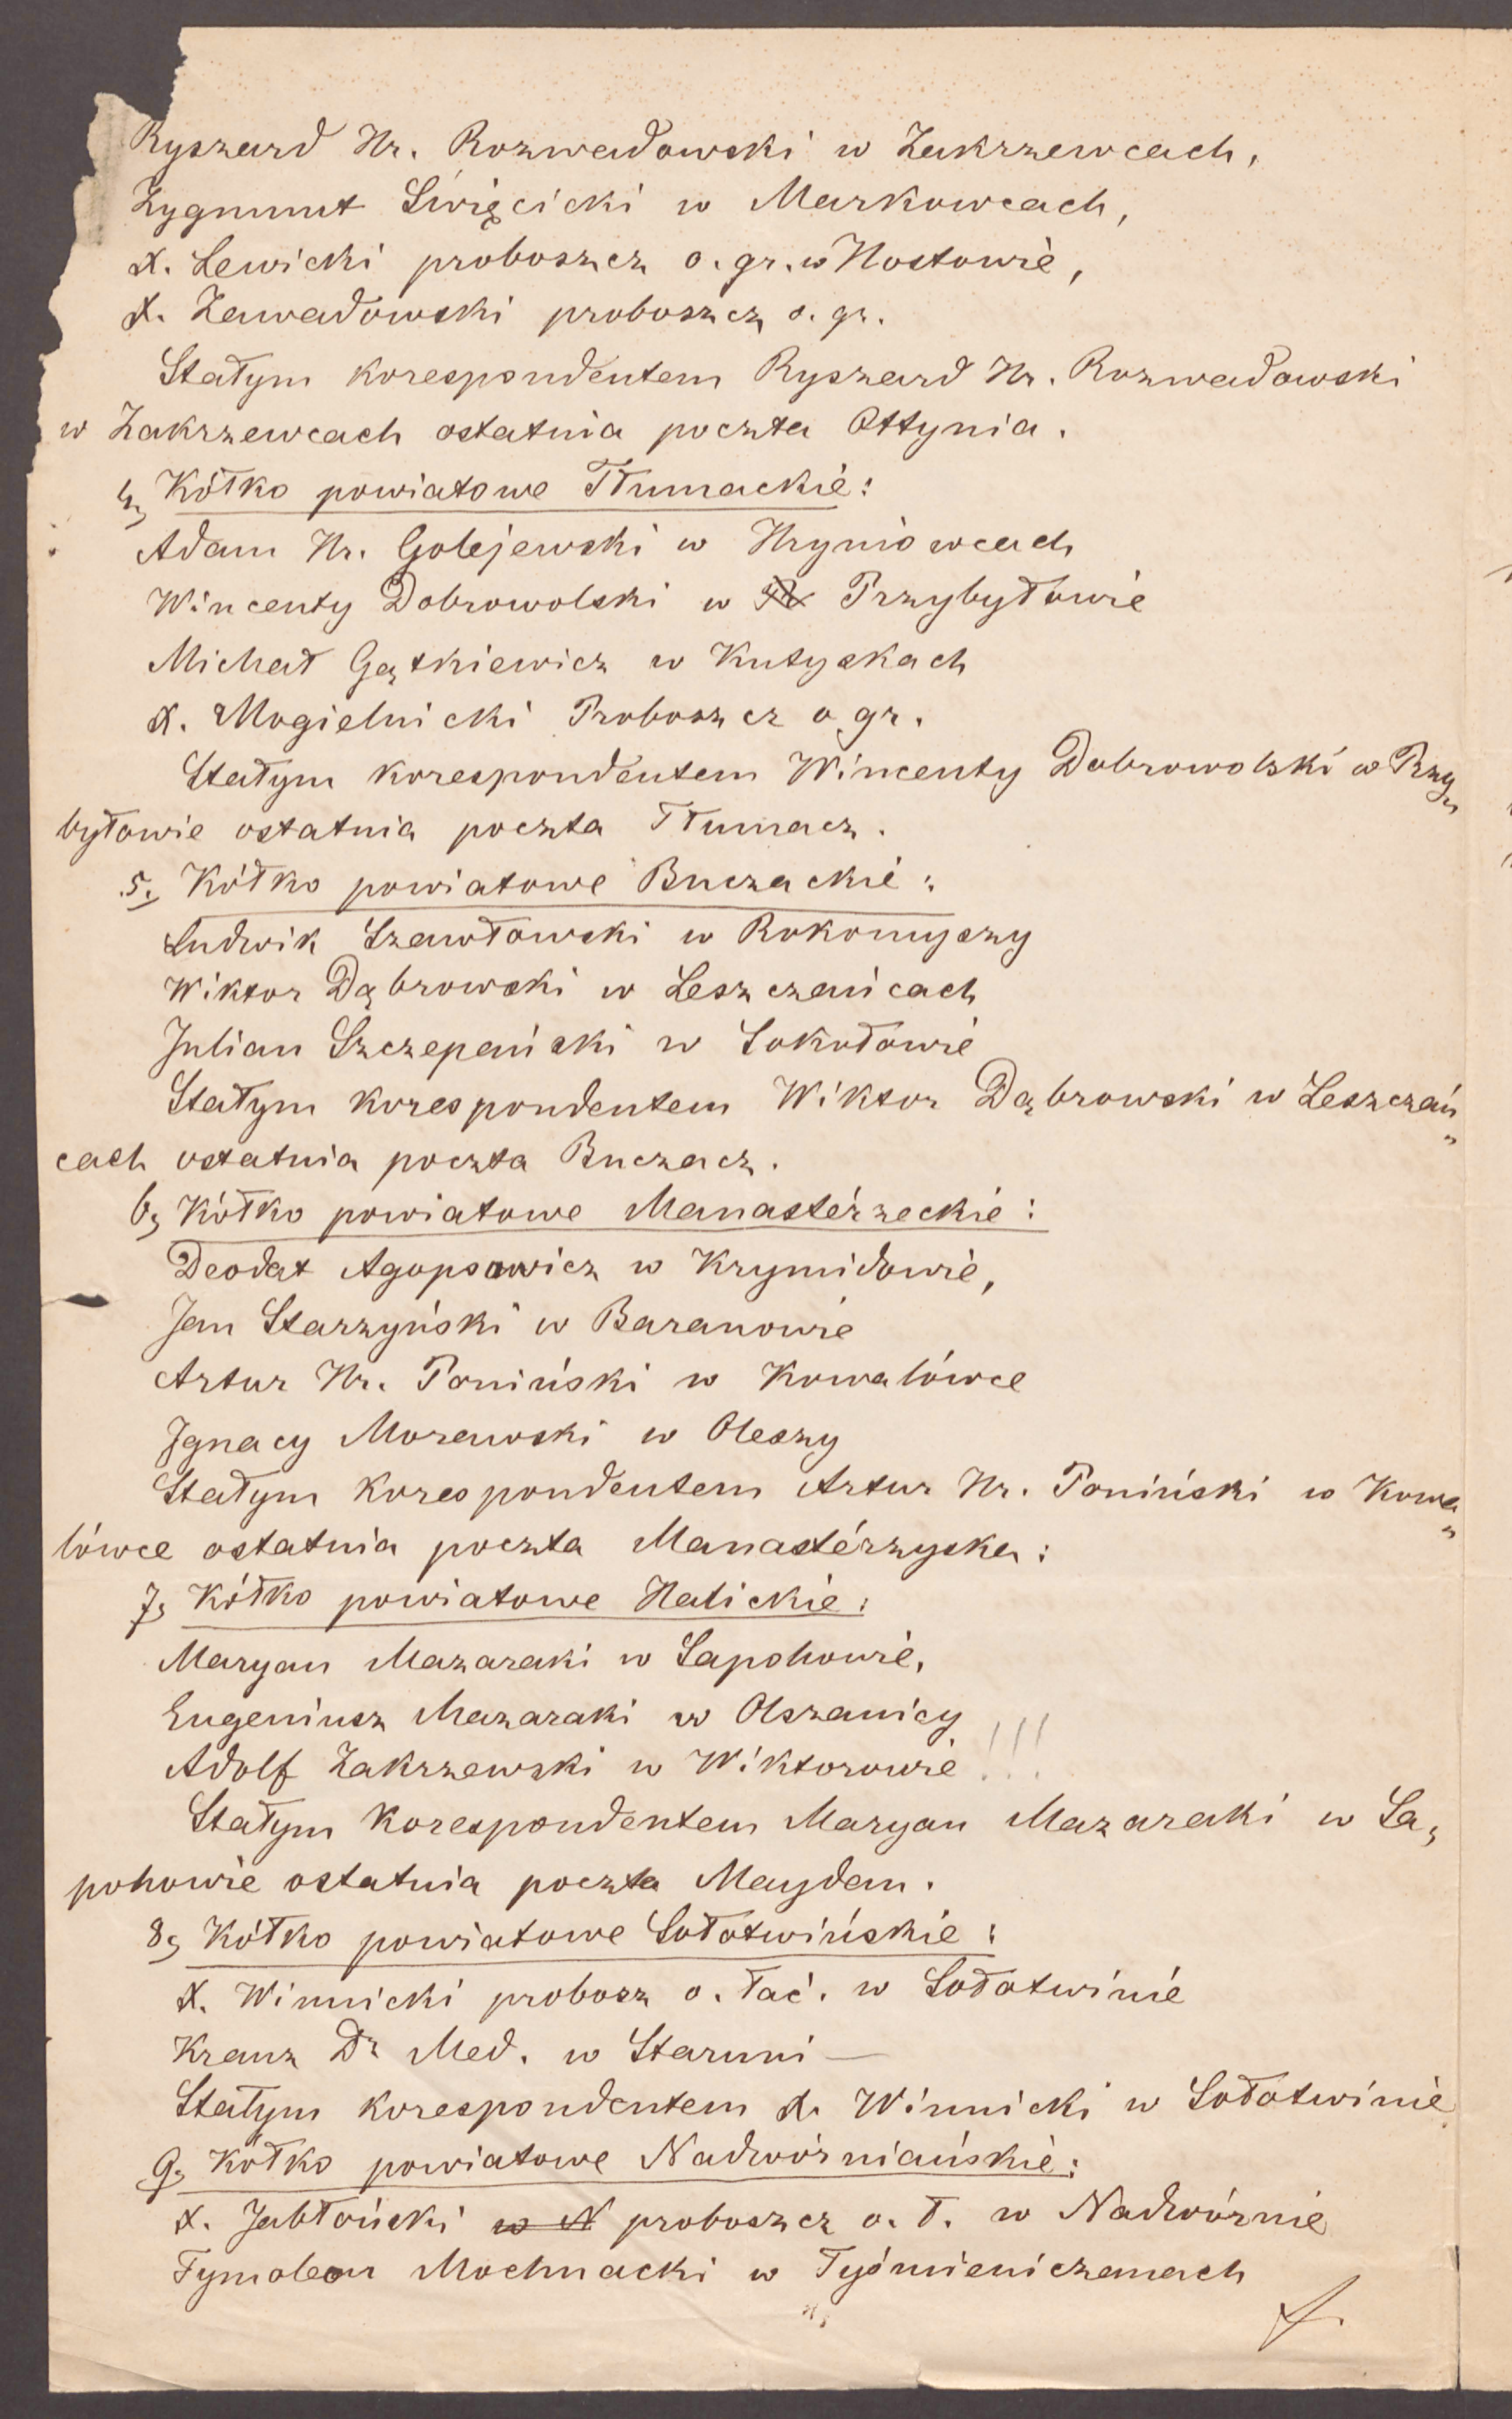 Ryszard Hr. Rozwadowski w Zakrzewcach,
Zygmunt Święcicki w Markowcach,
X. Lewicki proboszcz o. gr. w Hostowie,
X. Zawadowski proboszcz o. gr.
Stałym korespondentem Ryszard Hr. Rozwadowski
w Zakrzewcach ostatnia poczta Ottynia.
4, Kółko powiatowe Tłumackie:
Adam Hr. Golejewski w Hryniowcach
Wincenty Dobrowolski w Przybyłowie
Michał Gątkiewicz w Kutyskach
X. Mogielnicki Proboszcz o gr.
Stałym korespondentem Wincenty Dobrowolski w Przy„
byłowie ostatnia poczta Tłumacz.
5, Kółko powiatowe Buczackie:
Ludwik Szawłowski w Rokomyszy
Wiktor Dąbrowski w Leszczańcach
Julian Szczepański w Sokołowie
Stałym korespondentem Wiktor Dąbrowski w Leszczań„
cach ostatnia poczta Buczacz.
6, Kółko powiatowe Manastérzeckie:
Deodat Agopsowicz w Krymidowie,
Jan Starzyński w Baranowie
Artur Hr. Poniński w Kowalówce
Ignacy Morawski w Oleszy
Stałym korespondentem Artur Hr. Poniński w Kowa„
lówce ostatnia poczta Manastérzyska:
7, Kółko powiatowe Halickie:
Maryan Mazaraki w Sapohowie,
Eugeniusz Mazaraki w Olszanicy
Adolf Zakrzewski w Wiktorowie !!!
Stałym korespondentem Maryan Mazaraki w Sa,
pohowie ostatnia poczta Maydan.
8, Kółko powiatowe Sołotwińskie:
X. Winnicki probosz o. łać. w Sołotwinie
Kranz Dr Med. w Staruni —
Stałym korespondentem X. Winnicki w Sołotwinie
9, Kółko powiatowe Nadwórniańskie:
X. Jabłoński w N proboszcz o. ł. w Nadwórnie
Tymoleon Mochnacki w Tyśmieniczanach